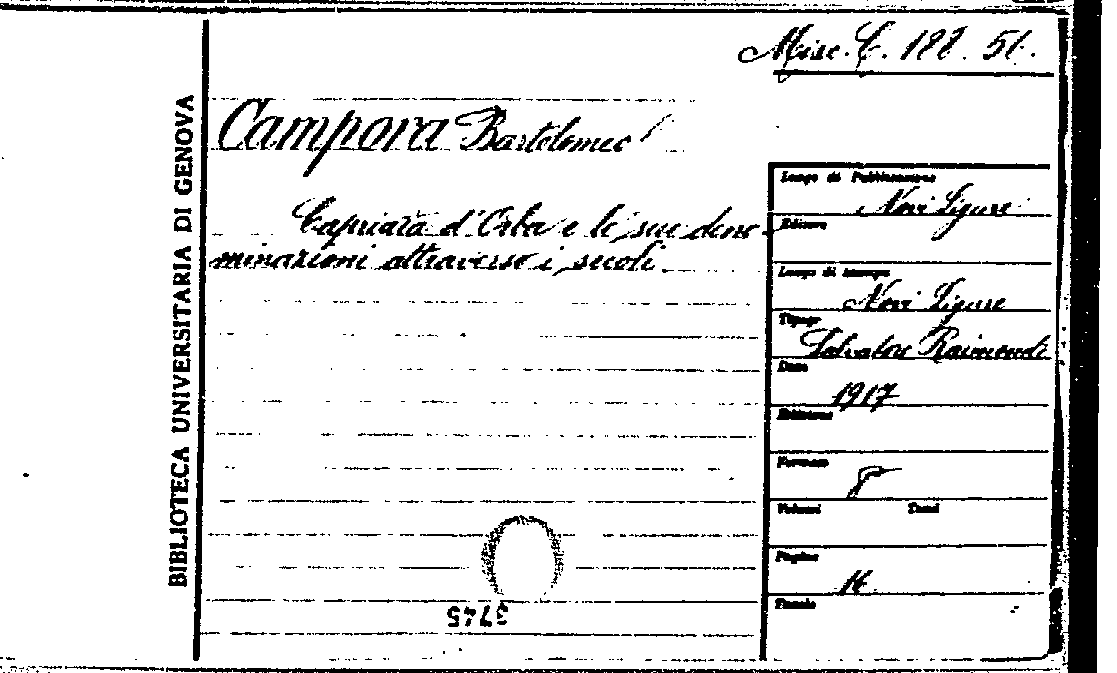 Misc. C. 188. 51.
BIBLIOTECA UNIVERSITARIA DI GENOVA
Campora Bartolomeo
Capriata d'Orba e le sue deno-
minazioni attraverso i secoli
Luogo di Pubblicazione
Novi Ligure
Editore
Luogo di stampa
Novi Ligure
Tipogr.
Salvatore Raimondi
Data
1917
Edizione
Formato
8
Volumi Tomi
Pagine
14
Tavole
3745